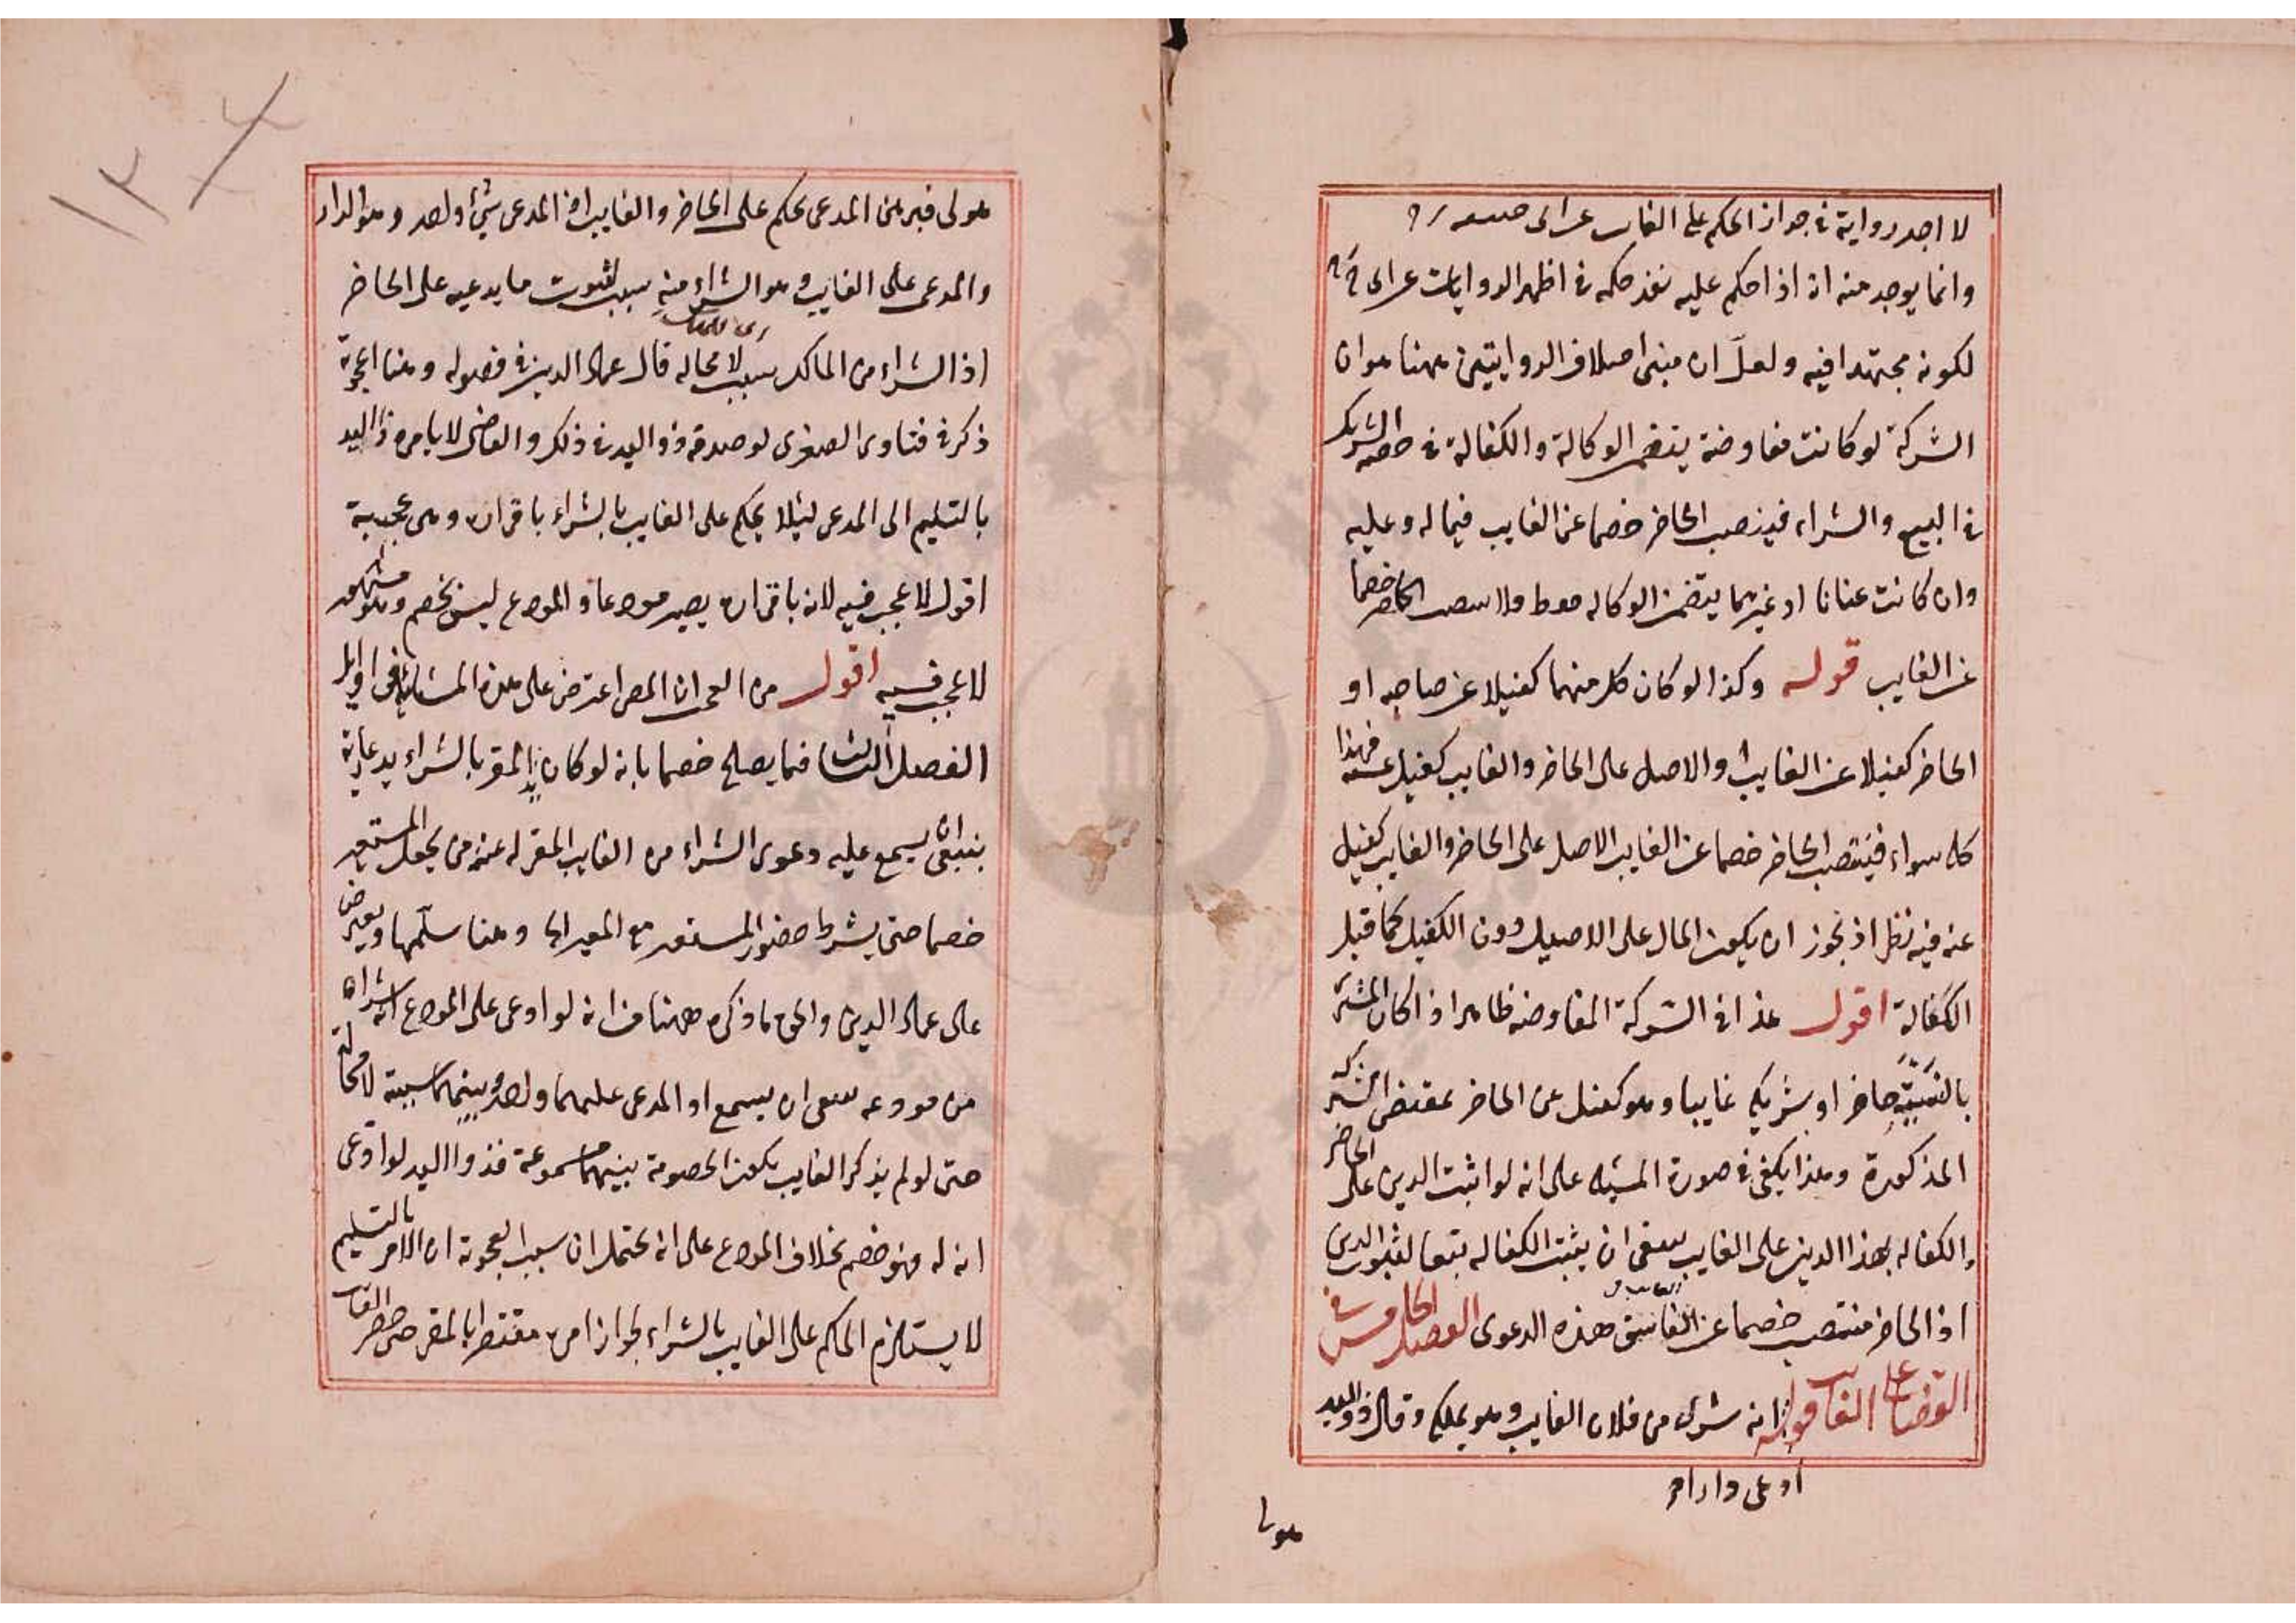 لا اجد رواية في جواز الحكم على الغايب عن ابى
وانما يوجد منه ان اذا حكم عليه نفذ حكمه في اظهر الروايات عن ابى
لكونه مجتهدا فيه ولعل ان مبنى اختلاف الروايتين ههنا هو ان
الشركة لو كانت مفاوضة يتضمن الوكالة والكفالة في حصة الشريك
في البيع والشراء فينصب الحاضر خصما عن الغايب فيما له وعليه
وان كانت عنانا او غيرهما يتضمن الوكاله فقط فلا الحاضر خصما
عن الغايب قوله وكذا لو كان كل منهما كفيلا عن صاحبه او
الحاضر كفيلا عن الغايب او الاصل على الحاضر والغايب كفيل عنه فهذا
كله سواء فينتصب الحاضر خصما عن الغايب الاصل على الحاضر والغايب كفيل
عنه فيه نظر اذ يجوز ان يكون المال على الاصيل دون الكفيل كما قبل
الكفالة اقول هذا في الشركة المفاوضه ظاهر اذا كان
حاضر او شريكه غايبا وهو كفيل عن الحاضر بمقتضى الشركة
المذكورة وهذا يكفي في صورة المسئله على انه لو اثبت الدين على الحاضر
والكفاله بهذا الدين على الغايب ينبغى ان يثبت الكفاله تبعا لثبوت الدين
اذ الحاضر منتصب خصما عن الغايب هذه الدعوى الفصل الخامس في
القضا على الغايب قوله انه شراه من فلان الغايب وهو يملكه وقال ذو اليد
ادعى دارا
هو لى
١٣
هو لى فبرهن المدعى يحكم على الحاضر والغايب اذ المدعى شئ واحد وهو الدار
والمدعى على الغايب وهو الشراء منه سبب لثبوت ما يدعيه على الحاضر
اذ الشراء من المالك سبب لا محاله قال عماد الدين في فصوله وهنا اعجوبة
ذكر في فتاوى الصغرى لو صدقه ذو اليد في ذلك والقاضى لا يامره ذا اليد
بالتسليم الى المدعى لئلا يحكم على الغايب بالشراء باقراره وهى عجيبة
اقول لا عجب فيه لانه باقراره يصير مودعا والمودع ليس بخصم وهو مشهور
لا عجب فيه اقول من العجب ان المص اعترض على هذه المسئلة في اوايل
الفصل الثالث فيما يصلح خصما بانه لو كان المقر بالشراء يدعاريه
ينبغى ان يسمع عليه دعوى الشراء من الغايب المقر له عند من يجعل المستعير
خصما حتى يشرط حضور المستعير مع المعير وهنا سلمها ويعترض
على عماد الدين والحق ما ذكره ههنا من انه لو ادعى على المودع انه شراه
من مودعه ينبغى ان يسمع اذ المدعى عليهما واحد وبينهما سببية لا محالة
حتى لو لم يذكر الغايب يكون الخصومة بينهما مسموعة فذو اليد لو ادعى
انه له فهو خصم بخلاف المودع على انه يحتمل ان سبب العجوبة ان الامر بالتسليم
لا يستلزم الحكم على الغايب بالشراء لجواز امره مقتصرا بالمقر حتى حضر الغايب